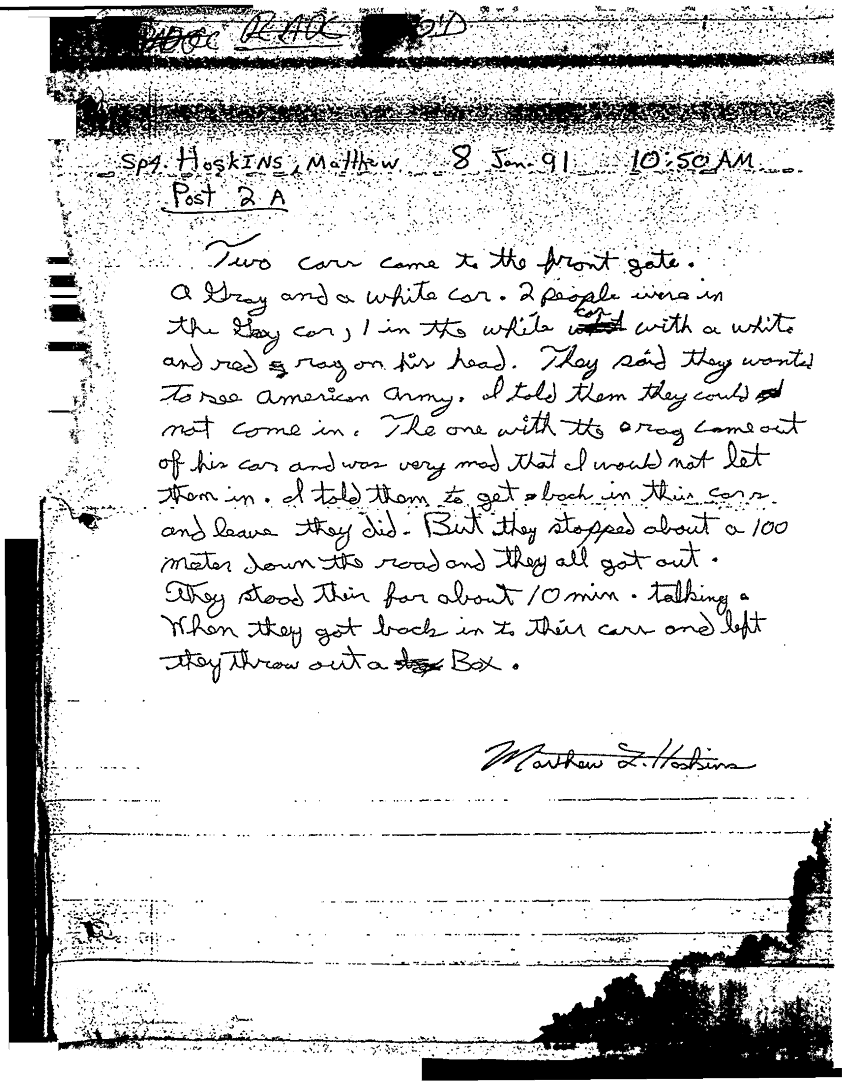 RAOC
Sp4. HoskINS, Matthew 8 Jan. 91 10:50 AM
Post 2 A
Two cars came to the front gate.
A Gray and a white car. 2 people were in
the Gray car, 1 in the white car with a white
and red rag on his head. They said they wanted
to see American Army. I told them they could
not come in. The one with the rag came out
of his car and was very mad that I would not let
them in. I told them to get back in their cars
and leave they did. But they stopped about a 100
meter down the road and they all got out.
They stood their for about 10 min. talking.
When they got back in to their cars and left
they throw out a Box.
Matthew L. Hoskins